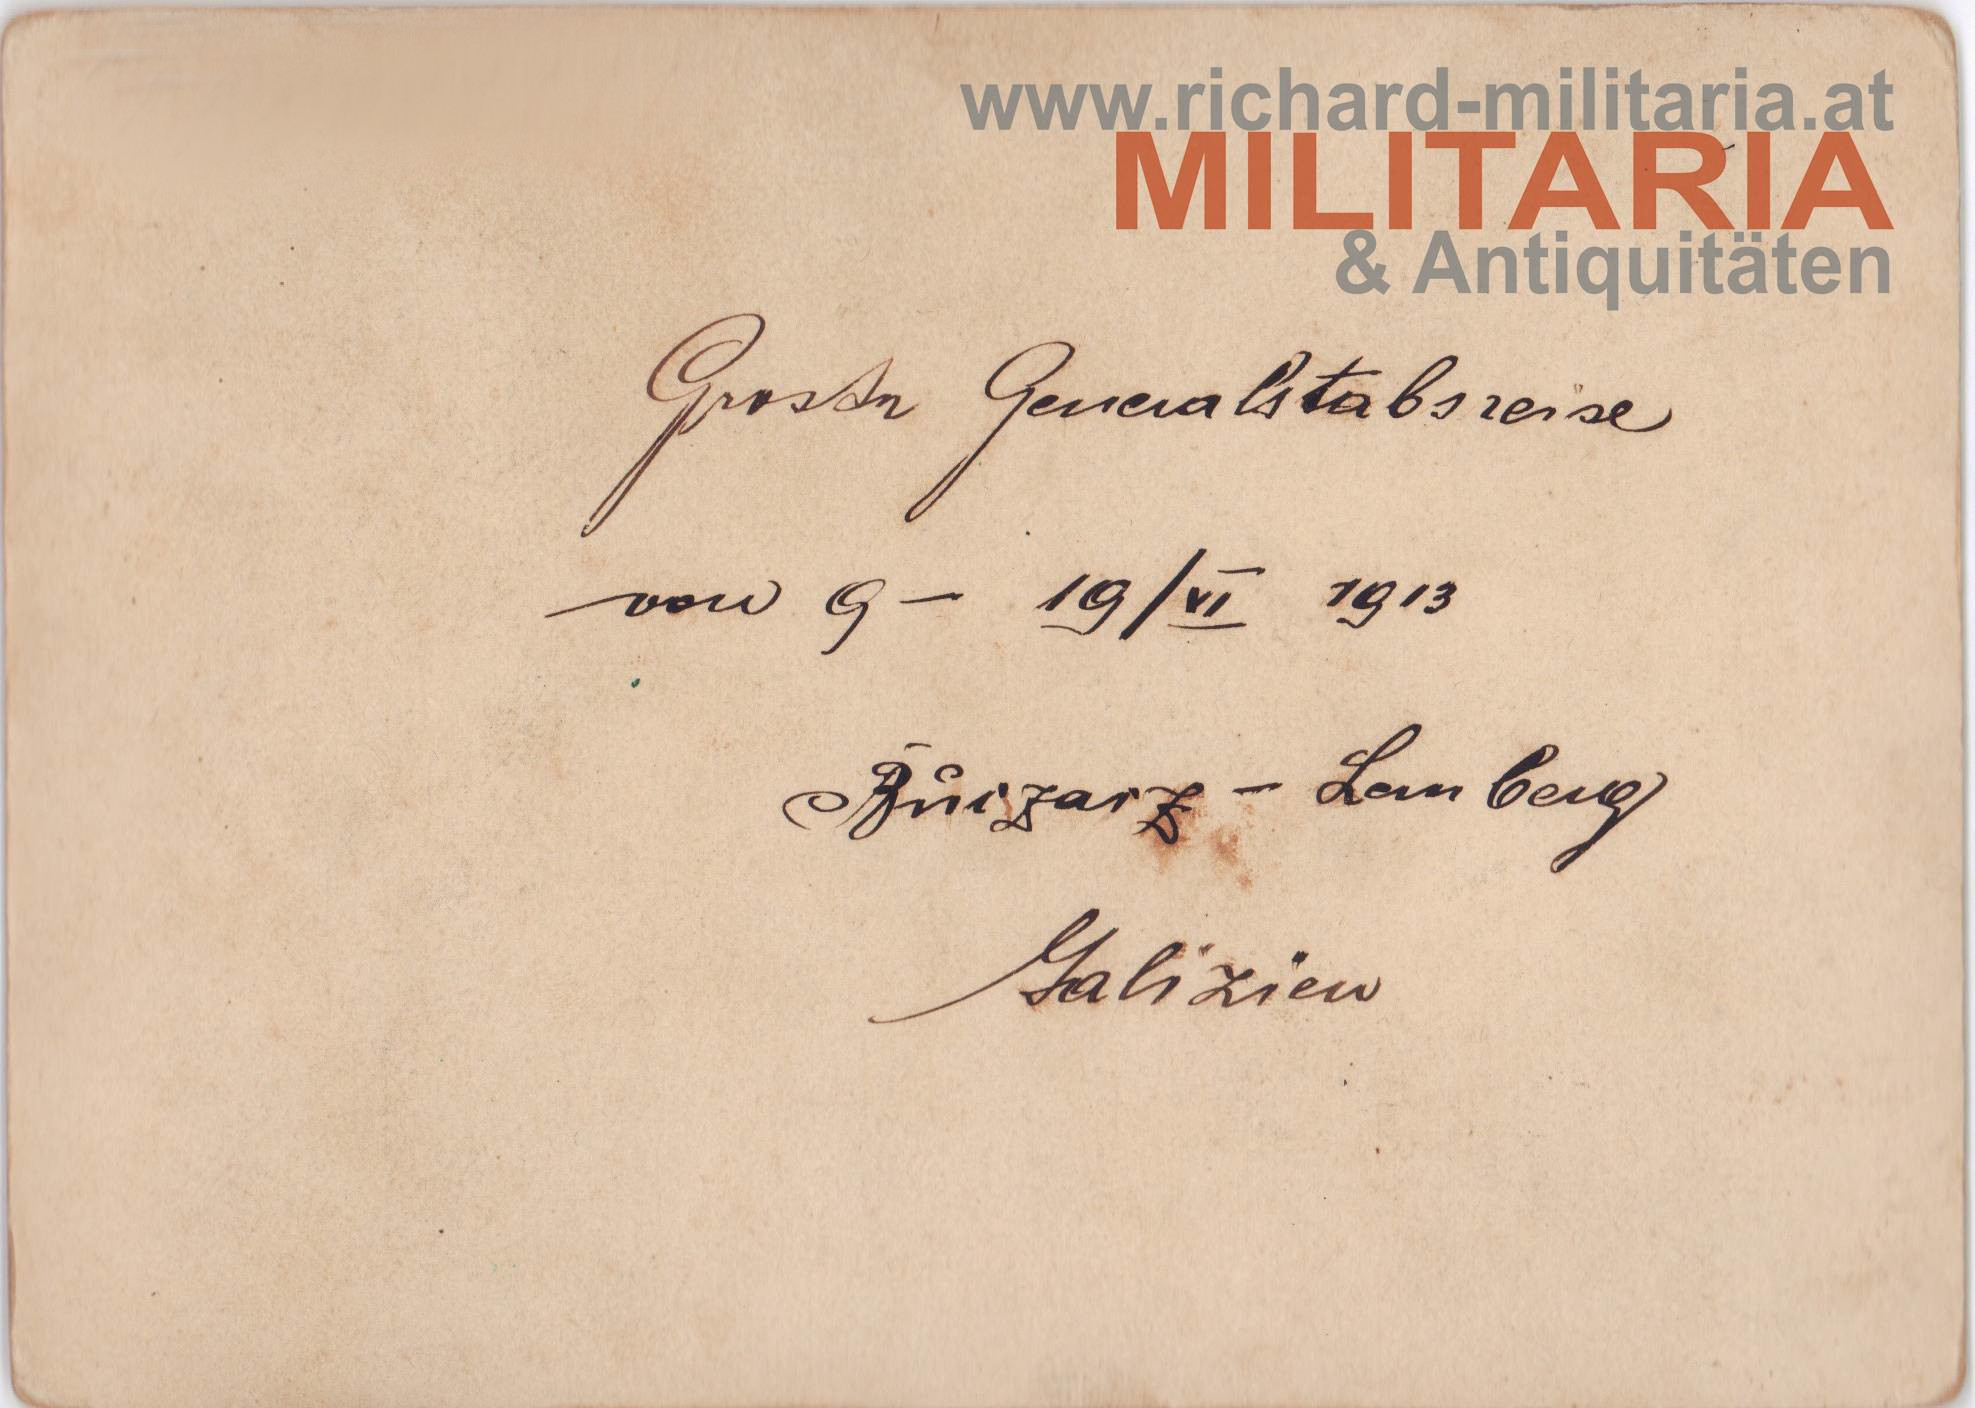 www.richard-militaria.at
MILITARIA
& Antiquitäten
Generalstabsreise
von 9 - 19/VI 1913
- Lemberg
Galizien